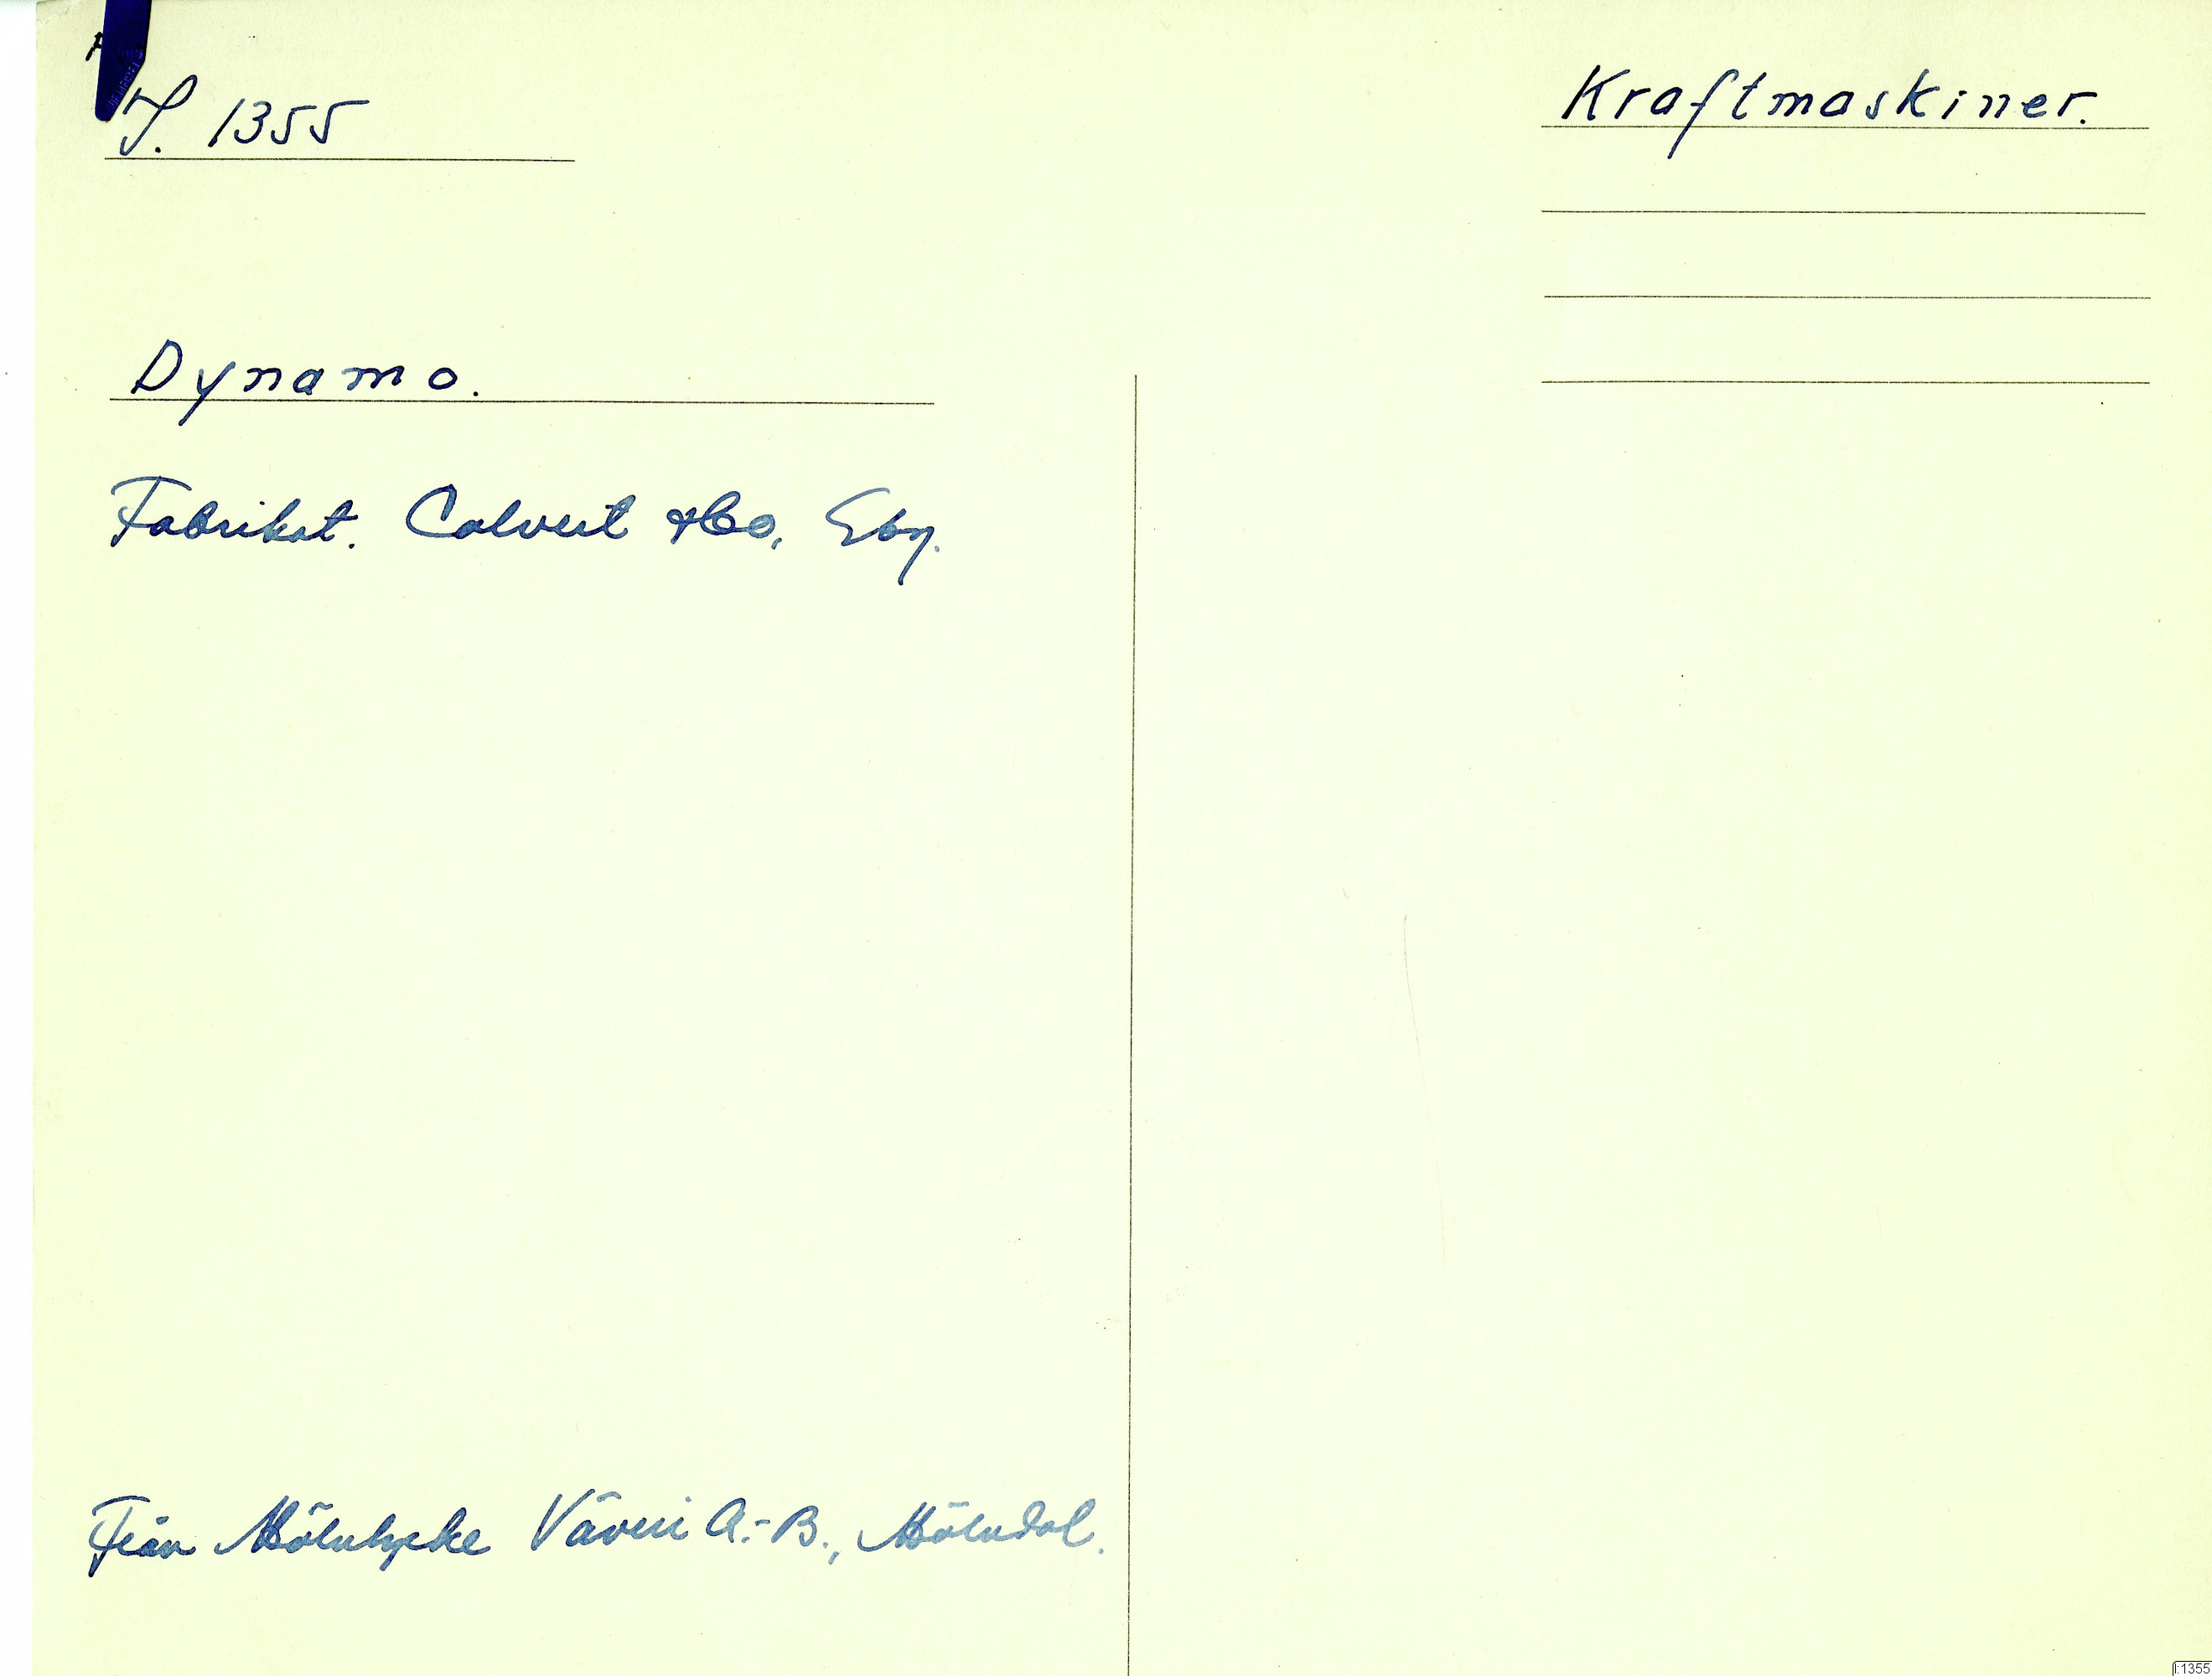 I. 1355
Kraftmaskiner.
Dynamo.
Fabrikat. Calvert & Co,
Från Mölnlycke Väveri A.-B., Mölndal.
I:1355